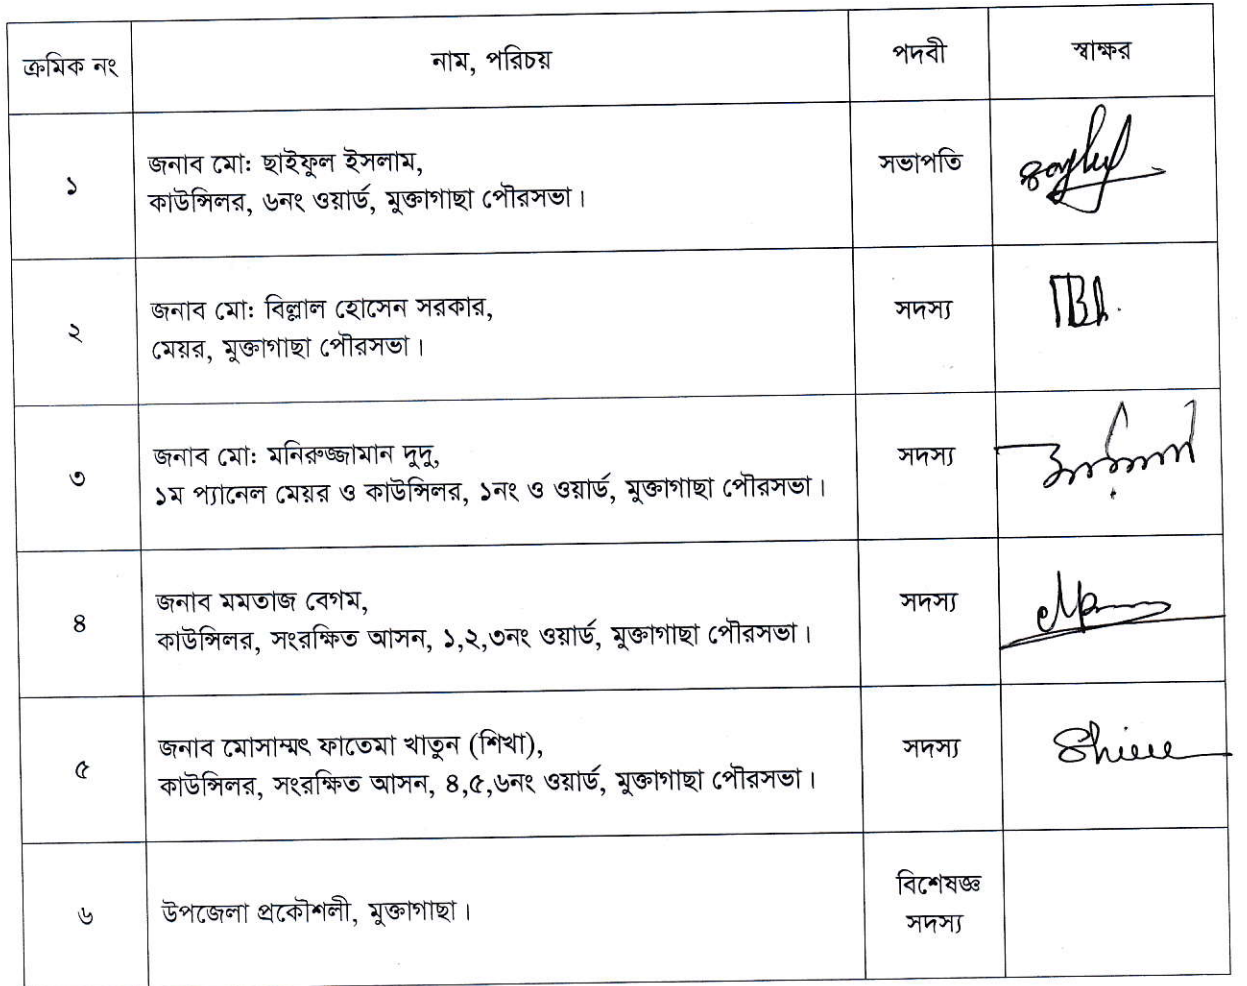 ক্রমিক নং নাম, পরিচয় পদবী স্বাক্ষর
১ জনাব মো: ছাইফুল ইসলাম, সভাপতি
কাউন্সিলর, ৬নং ওয়ার্ড, মুক্তাগাছা পৌরসভা।
২ জনাব মো: বিল্লাল হোসেন সরকার, সদস্য
মেয়র, মুক্তাগাছা পৌরসভা।
৩ জনাব মো: মনিরুজ্জামান দুদু, সদস্য
১ম প্যানেল মেয়র ও কাউন্সিলর, ১নং ও ওয়ার্ড, মুক্তাগাছা পৌরসভা।
৪ জনাব মমতাজ বেগম, সদস্য
কাউন্সিলর, সংরক্ষিত আসন, ১,২,৩নং ওয়ার্ড, মুক্তাগাছা পৌরসভা।
৫ জনাব মোসাম্মৎ ফাতেমা খাতুন (শিখা), সদস্য
কাউন্সিলর, সংরক্ষিত আসন, ৪,৫,৬নং ওয়ার্ড, মুক্তাগাছা পৌরসভা।
৬ উপজেলা প্রকৌশলী, মুক্তাগাছা। বিশেষজ্ঞ
সদস্য